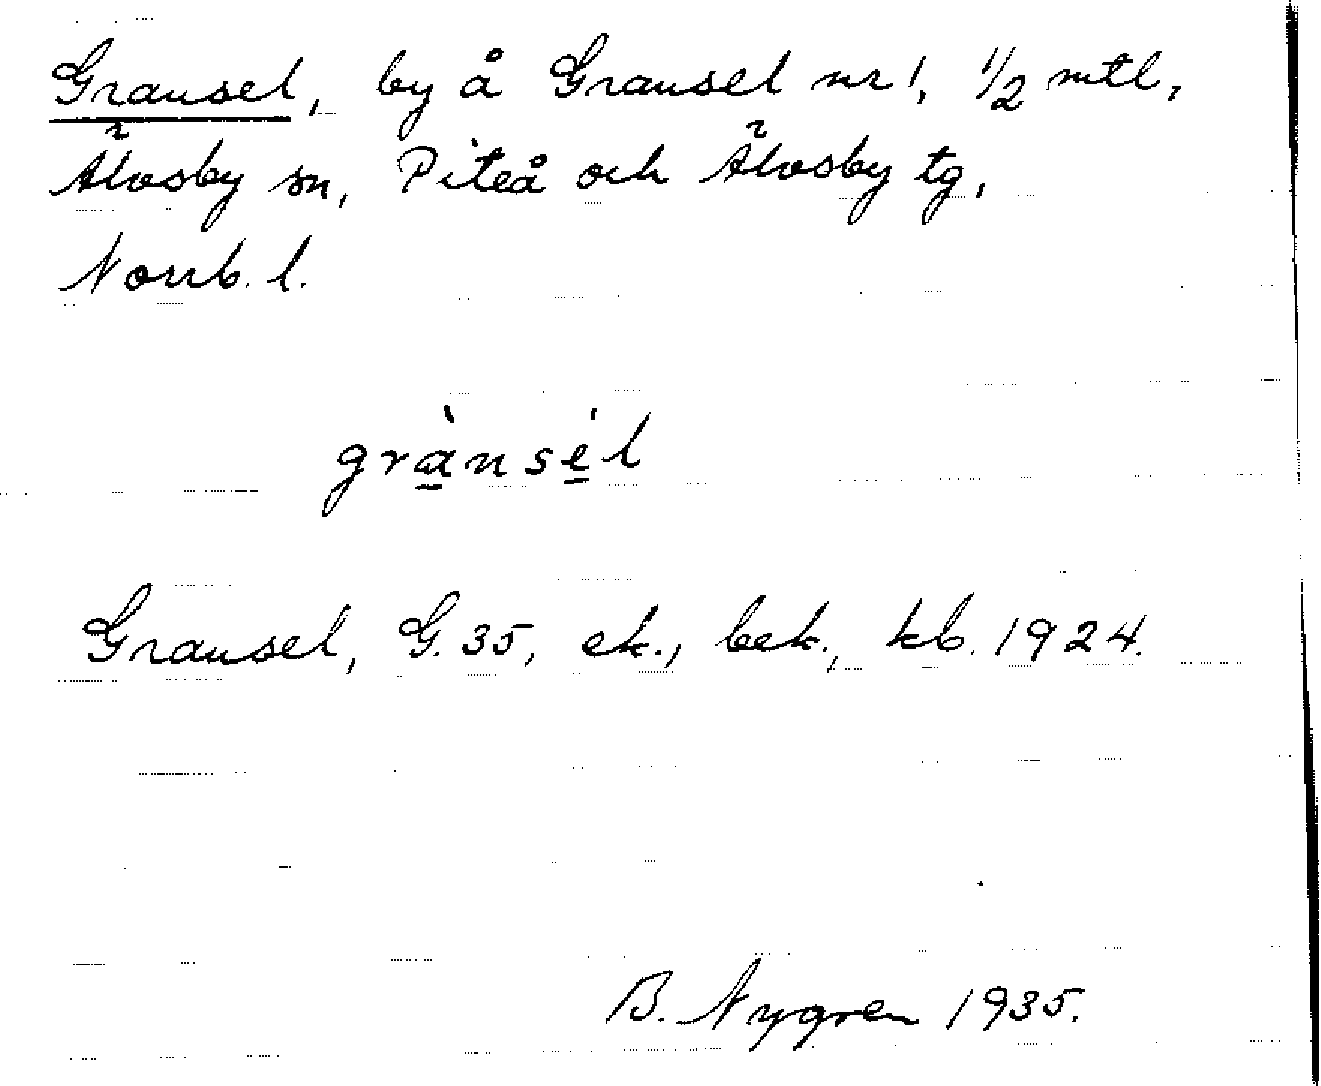 Gransel, by å Gransel nr 1, 1/2 mtl,
Älvsby sn, Piteå och Älvsby tg,
Norrb. l.
grànsél
Gransel, G. 35, ek., bek., kb. 1924.
B. Nygren 1935.